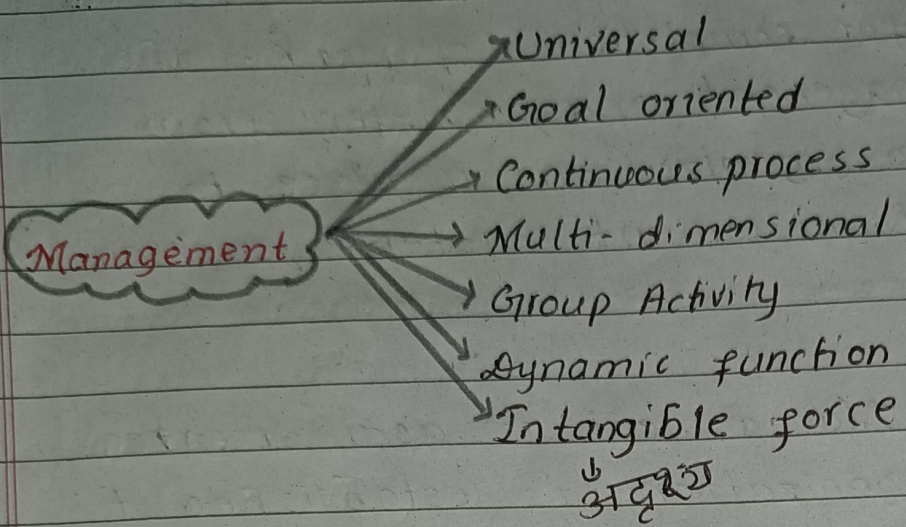 Universal
Goal oriented
Continuous process
Management
Multi-dimensional
Group Activity
Dynamic function
Intangible force
अदृश्य